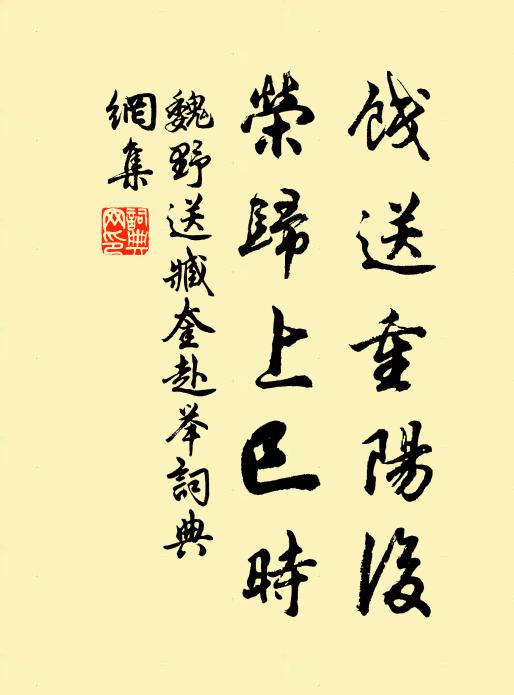 餞送重陽後
榮歸上巳時
魏野送臧奎赴举詞典
網集
詞典
网印